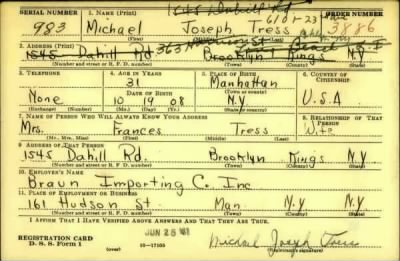 1545 Dahill Rd
SERIAL NUMBER 1. NAME (Print) ORDER NUMBER
983 Michael Joseph Tress 3186
(First) (Middle) (Last)
2. ADDRESS (Print)
1545 Dahill Rd. Brooklyn Kings N.Y.
(Number and street or R. F. D. number) (Town) (County) (State)
3. TELEPHONE 4. AGE IN YEARS 5. PLACE OF BIRTH 6. COUNTRY OF CITIZENSHIP
31 Manhattan
DATE OF BIRTH (Town or county)
None 10 19 08 N.Y. U.S.A
(Exchange) (Number) (Mo.) (Day) (Yr.) (State or country)
7. NAME OF PERSON WHO WILL ALWAYS KNOW YOUR ADDRESS 8. RELATIONSHIP OF THAT PERSON
Mrs. Frances Tress Wife
(Mr., Mrs., Miss) (First) (Middle) (Last)
9. ADDRESS OF THAT PERSON
1545 Dahill Rd. Brooklyn Kings N.Y.
(Number and street or R. F. D. number) (Town) (County) (State)
10. EMPLOYER'S NAME
Braun Importing C. Inc
11. PLACE OF EMPLOYMENT OR BUSINESS
161 Hudson St. Man. N.Y. N.Y.
(Number and street or R. F. D. number) (Town) (County) (State)
I AFFIRM THAT I HAVE VERIFIED ABOVE ANSWERS AND THAT THEY ARE TRUE.
REGISTRATION CARD
D. S. S. Form 1 (over) 16-17105
JUN 25
Michael Joseph Tress
(Registrant's signature)